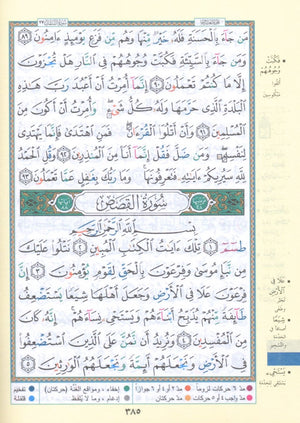 مَن جَآءَ بِٱلْحَسَنَةِ فَلَهُۥ خَيْرٌ مِّنْهَا وَهُم مِّن فَزَعٍ يَوْمَئِذٍ ءَامِنُونَ ٨٩
وَمَن جَآءَ بِٱلسَّيِّئَةِ فَكُبَّتْ وُجُوهُهُمْ فِى ٱلنَّارِ هَلْ تُجْزَوْنَ
إِلَّا مَا كُنتُمْ تَعْمَلُونَ ٩٠ إِنَّمَآ أُمِرْتُ أَنْ أَعْبُدَ رَبَّ هَٰذِهِ
ٱلْبَلْدَةِ ٱلَّذِى حَرَّمَهَا وَلَهُۥ كُلُّ شَىْءٍ وَأُمِرْتُ أَنْ أَكُونَ مِنَ
ٱلْمُسْلِمِينَ ٩١ وَأَنْ أَتْلُوَا۟ ٱلْقُرْءَانَ فَمَنِ ٱهْتَدَىٰ فَإِنَّمَا يَهْتَدِى
لِنَفْسِهِۦ وَمَن ضَلَّ فَقُلْ إِنَّمَآ أَنَا۠ مِنَ ٱلْمُنذِرِينَ ٩٢ وَقُلِ ٱلْحَمْدُ
لِلَّهِ سَيُرِيكُمْ ءَايَٰتِهِۦ فَتَعْرِفُونَهَا وَمَا رَبُّكَ بِغَٰفِلٍ عَمَّا تَعْمَلُونَ ٩٣
سُورَةُ القَصَصِ
بِسْمِ ٱللَّهِ ٱلرَّحْمَٰنِ ٱلرَّحِيمِ
طسٓمٓ ١ تِلْكَ ءَايَٰتُ ٱلْكِتَٰبِ ٱلْمُبِينِ ٢ نَتْلُوا۟ عَلَيْكَ
مِن نَّبَإِ مُوسَىٰ وَفِرْعَوْنَ بِٱلْحَقِّ لِقَوْمٍ يُؤْمِنُونَ ٣ إِنَّ
فِرْعَوْنَ عَلَا فِى ٱلْأَرْضِ وَجَعَلَ أَهْلَهَا شِيَعًا يَسْتَضْعِفُ
طَآئِفَةً مِّنْهُمْ يُذَبِّحُ أَبْنَآءَهُمْ وَيَسْتَحْىِۦ نِسَآءَهُمْ إِنَّهُۥ كَانَ
مِنَ ٱلْمُفْسِدِينَ ٤ وَنُرِيدُ أَن نَّمُنَّ عَلَى ٱلَّذِينَ ٱسْتُضْعِفُوا۟
فِى ٱلْأَرْضِ وَنَجْعَلَهُمْ أَئِمَّةً وَنَجْعَلَهُمُ ٱلْوَٰرِثِينَ ٥
فَكُبَّتْ
وُجُوهُهُمْ
عَلَا فِي
الأَرْضِ
شِيَعًا
مد ٦ حركات لزوماً
مد ٢ أو ٤ أو ٦ جوازاً
مد حركتان
إخفاء، ومواقع الغُنَّة (حركتان)
إدغام، وما لا يُلفظ
تفخيم
قلقلة
٣٨٥